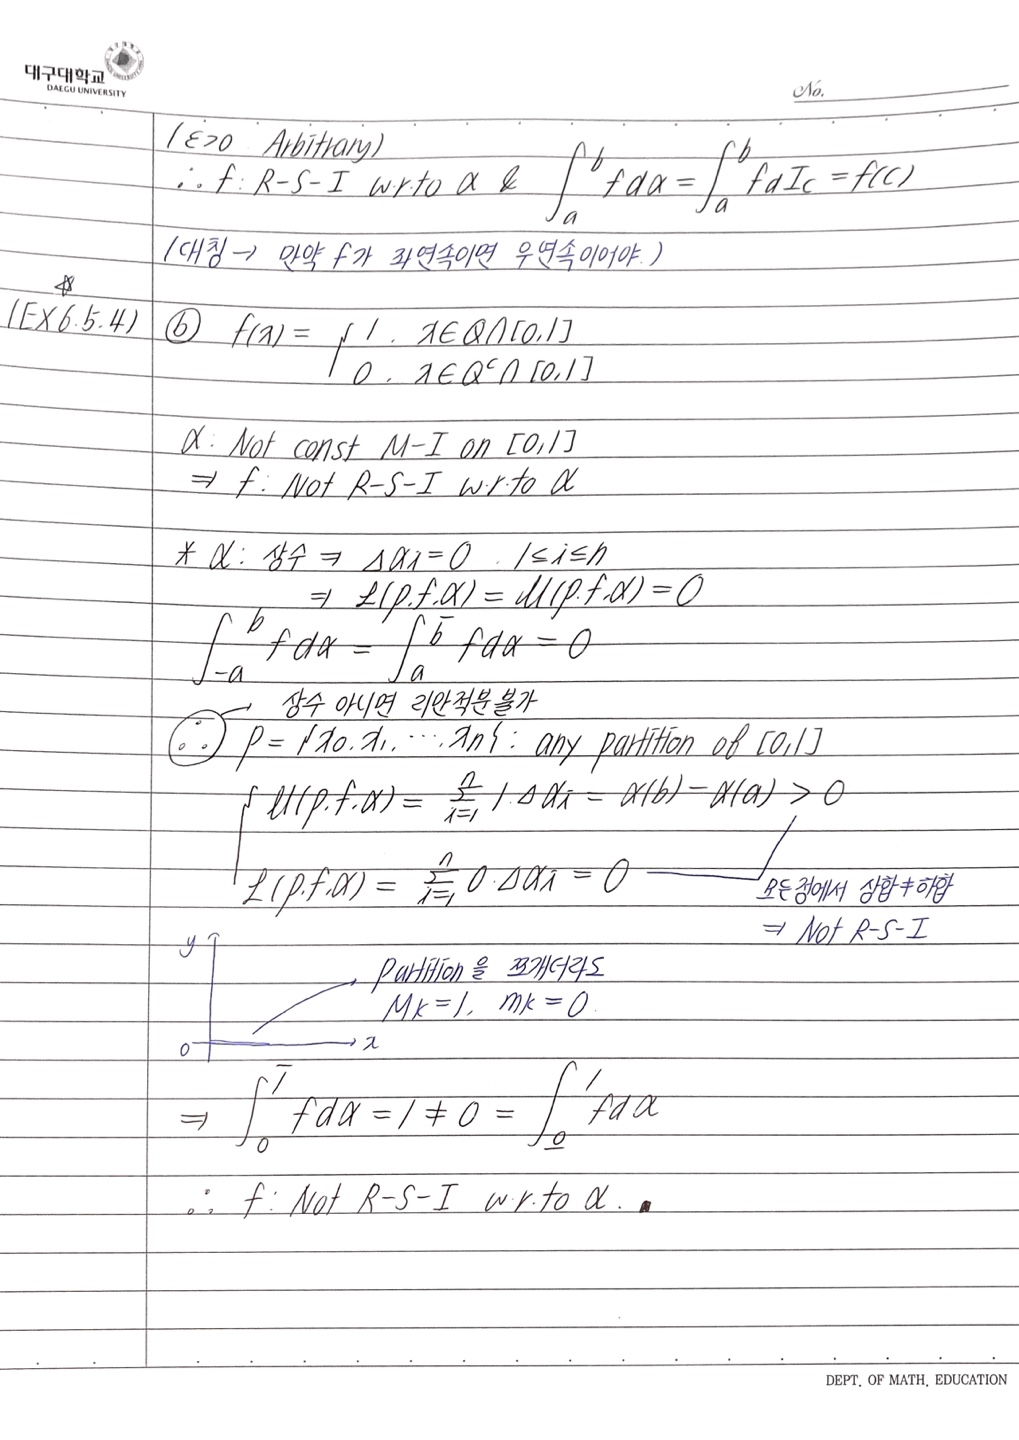 대구대학교
DAEGU UNIVERSITY
No.
(ε>0 Arbitrary)
∴ f: R-S-I w.r.to α & ∫_a^b fdα = ∫_a^b fdI_c = f(c)
(대칭→ 만약 f가 좌연속이면 우연속이어야.)
☆
(EX6.5.4) ⓑ f(x) = { 1. x∈Q∩[0,1]
0. x∈Q^c∩[0,1]
α: Not const M-I on [0,1]
⇒ f: Not R-S-I w.r.to α
* α: 상수 ⇒ Δαi=0. 1≤i≤n
⇒ L(p.f.α) = U(p.f.α) = 0
∫_{-a}^b fdα = ∫_a^{\bar{b}} fdα = 0
상수 아니면 리만적분불가
∵ p = {x0.x1.⋯.xn}: any partition of [0,1]
U(p.f.α) = Σ_{i=1}^n 1·Δαi = α(b)-α(a) > 0
L(p.f.α) = Σ_{i=1}^n 0·Δαi = 0
모든점에서 상합≠하합
⇒ Not R-S-I
y
partition을 쪼개더라도
Mk=1, mk=0.
0 x
⇒ ∫_0^{\bar{1}} fdα = 1 ≠ 0 = ∫_{\underline{0}}^1 fdα
∴ f: Not R-S-I w.r.to α.
DEPT. OF MATH. EDUCATION